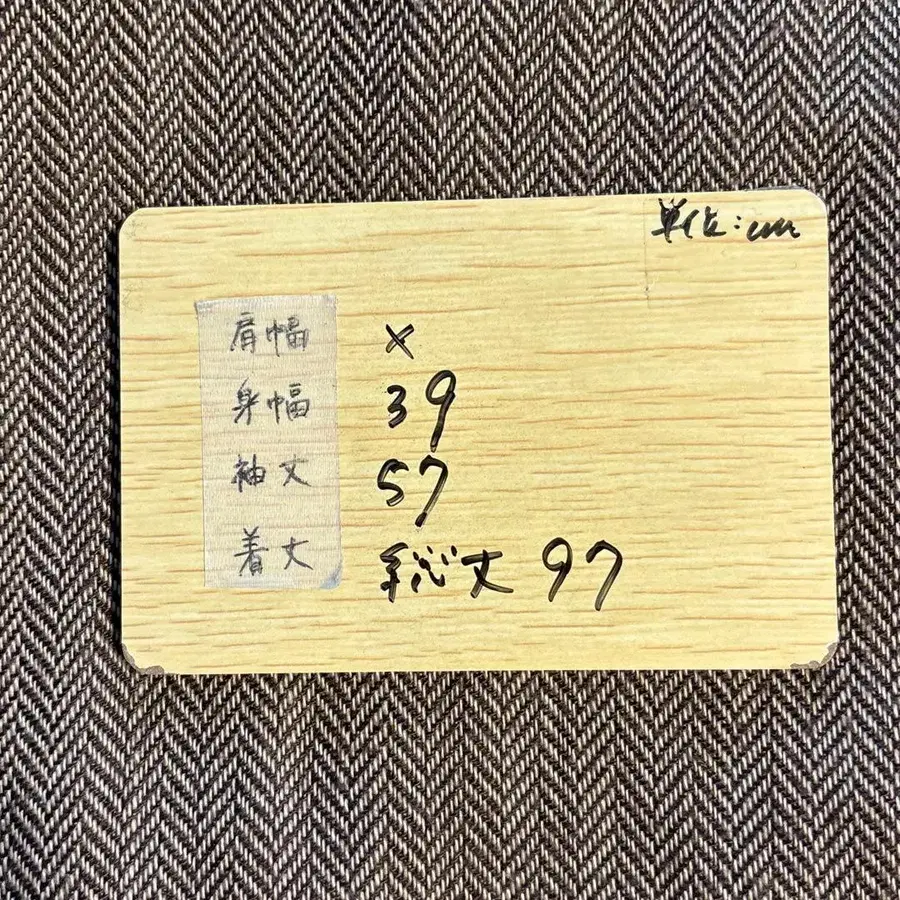 単位:cm
肩幅 ×
身幅 39
袖丈 57
着丈 総丈 97